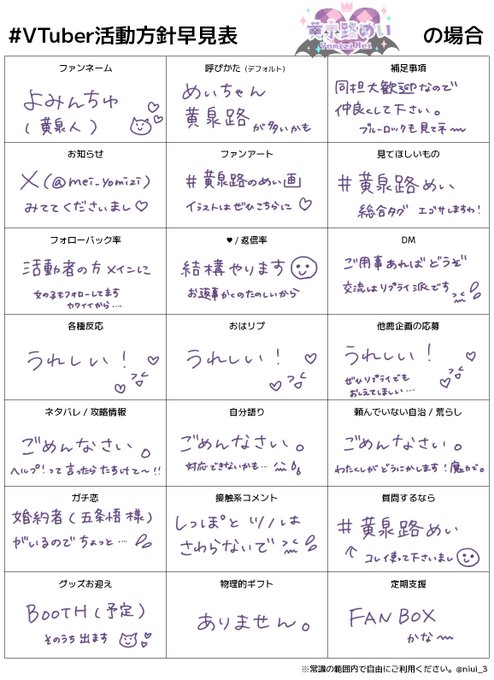 #VTuber活動方針早見表
黄泉路めい
Yomizi Mei
の場合
ファンネーム
よみんちゅ
(黄泉人)
呼びかた (デフォルト)
めいちゃん
黄泉路が多いかも
補足事項
同担大歓迎なので
仲良くして下さい。
ブルーロックも見てネ〜
お知らせ
X(@mei_yomizi)
みててくださいまし♡
ファンアート
#黄泉路のめい画
イラストはぜひこちらに♡
見てほしいもの
#黄泉路めい
総合タグ エゴサしますわ!
フォローバック率
活動者の方メインに
女の子をフォローしてます
カワイイから…
♥ / 返信率
結構やります
お返事かくのたのしいから
DM
ご用事あればどうぞ
交流はリプライ派です
各種反応
うれしい!
おはリプ
うれしい!
他薦企画の応募
うれしい!
ぜひリプライでも
おしえてほしい…
ネタバレ / 攻略情報
ごめんなさい。
ヘルプ!って言ったらたすけて〜!!
自分語り
ごめんなさい。
対応できないかも…
頼んでいない自治 / 荒らし
ごめんなさい。
わたくしがどうにかします!魔力で。
ガチ恋
婚約者(五条悟様)
がいるのでちょっと…
接触系コメント
しっぽとツノは
さわらないで
質問するなら
#黄泉路めい
↑コレ使って下さいまし
グッズお迎え
BOOTH(予定)
そのうち出ます
物理的ギフト
ありません。
定期支援
FANBOX
かな〜
※常識の範囲内で自由にご利用ください。@niui_3